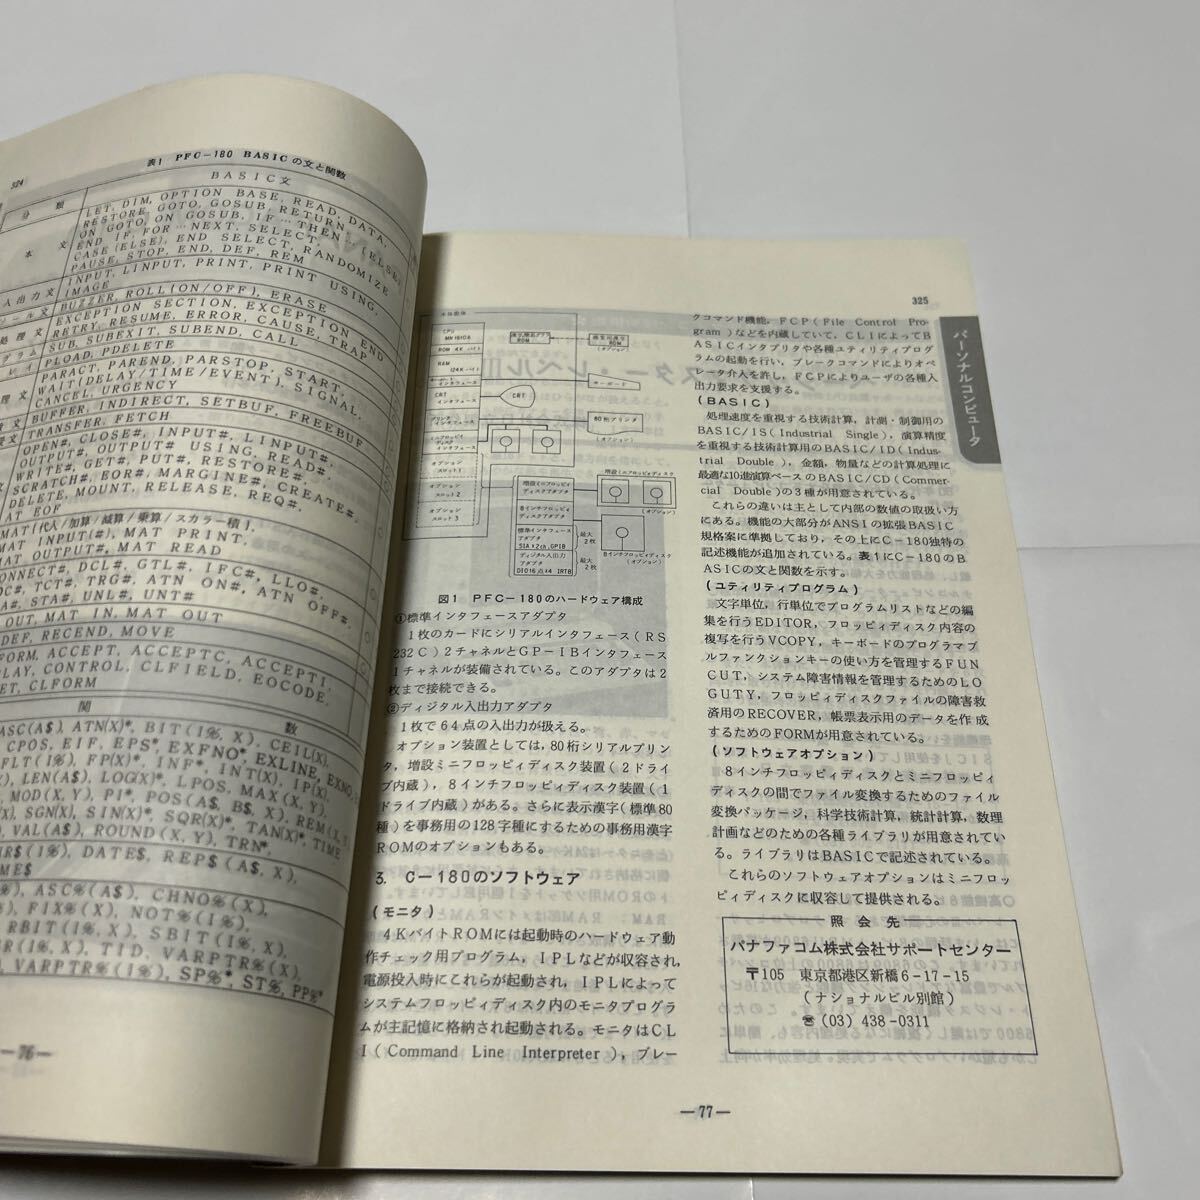 324
表1 PFC-180 BASICの文と関数
分類
BASIC文
本文
LET, DIM, OPTION BASE, READ, DATA,
RESTORE, GOTO, GOSUB, RETURN,
ON GOTO, ON GOSUB, IF…THEN…(ELSE)
END IF, FOR…NEXT, SELECT,
CASE(ELSE), END SELECT, RANDOMIZE
PAUSE, STOP, END, DEF, REM
入出力文
INPUT, LINPUT, PRINT, PRINT USING,
IMAGE
BUZZER, ROLL(ON/OFF), ERASE
処理文
EXCEPTION SECTION, EXCEPTION END
RETRY, RESUME, ERROR, CAUSE, TRAP
SUB, SUBEXIT, SUBEND, CALL
PLOAD, PDELETE
PARACT, PAREND, PARSTOP, START,
WAIT(DELAY/TIME/EVENT), SIGNAL,
CANCEL, URGENCY
BUFFER, INDIRECT, SETBUF, FREEBUF
TRANSFER, FETCH
OPEN#, CLOSE#, INPUT#, LINPUT#,
OUTPUT#, OUTPUT# USING, READ#,
WRITE#, GET#, PUT#, RESTORE#,
SCRATCH#, EOR#, MARGINE#, CREATE#,
DELETE, MOUNT, RELEASE, REQ#,
AT EOF
MAT(代入/加算/減算/乗算/スカラー積),
MAT INPUT(#), MAT PRINT,
MAT OUTPUT#, MAT READ
CONNECT#, DCL#, GTL#, IFC#, LLO#,
TCT#, TRG#, ATN ON#, ATN OFF#,
STA#, UNL#, UNT#
OUT, MAT IN, MAT OUT
DEF, RECEND, MOVE
FORM, ACCEPT, ACCEPTC, ACCEPTI,
CONTROL, CLFIELD, EOCODE,
CLFORM
関数
ASC(A$), ATN(X)*, BIT(I%, X), CEIL(X),
CPOS, EIF, EPS*, EXFNO*, EXLINE, EXNO,
FLT(I%), FP(X)*, INF*, INT(X), IP(X),
LEN(A$), LOG(X)*, LPOS, MAX(X, Y)
MOD(X, Y), PI*, POS(A$, B$, X), REM(X, Y)
SGN(X), SIN(X)*, SQR(X)*, TAN(X)*, TIME
VAL(A$), ROUND(X, Y), TRN*,
DATE$, REP$(A$, X),
ASC%(A$), CHNO%(X),
FIX%(X), NOT%(I%),
RBIT(I%, X), SBIT(I%, X),
TID, VARPTR%(X),
VARPTR%(I%), SP%*, ST%, PP%*
—76—
325
パーソナルコンピュータ
本体筐体
CPU
MN1610A
ROM 4K バイト
RAM
CRT
インタフェース
プリンタ
インタフェース
オプション
スロット1
オプション
スロット2
オプション
スロット3
(オプション)
キーボード
CRT
80桁プリンタ
(オプション)
増設ミニフロッピィディスク
増設ミニフロッピィ
ディスクアダプタ
(オプション)
8インチフロッピィ
ディスクアダプタ
標準インタフェース
アダプタ
SIA×2ch, GPIB
最大
2枚
ディジタル入出力
アダプタ
DIO16点×4 IRT8
最大
2枚
8インチフロッピィディスク
(オプション)
図1 PFC-180のハードウェア構成
①標準インタフェースアダプタ
1枚のカードにシリアルインタフェース(RS
232C)2チャネルとGP-IBインタフェース
1チャネルが装備されている。このアダプタは2
枚まで接続できる。
②ディジタル入出力アダプタ
1枚で64点の入出力が扱える。
オプション装置としては,80桁シリアルプリン
タ,増設ミニフロッピィディスク装置(2ドライ
ブ内蔵),8インチフロッピィディスク装置(1
ドライブ内蔵)がある。さらに表示漢字(標準80
種)を事務用の128字種にするための事務用漢字
ROMのオプションもある。
3. C-180のソフトウェア
(モニタ)
4KバイトROMには起動時のハードウェア動
作チェック用プログラム,IPLなどが収容され,
電源投入時にこれらが起動され,IPLによって
システムフロッピィディスク内のモニタプログラ
ムが主記憶に格納され起動される。モニタはCL
I(Command Line Interpreter),ブレー
クコマンド機能,FCP(File Control Pro-
gram)などを内蔵していて,CLIによってB
ASICインタプリタや各種ユティリティプログ
ラムの起動を行い,ブレークコマンドによりオペ
レータ介入を許し,FCPによりユーザの各種入
出力要求を支援する。
(BASIC)
処理速度を重視する技術計算,計測・制御用の
BASIC/IS(Industrial Single),演算精度
を重視する技術計算用のBASIC/ID(Indus-
trial Double),金額,物量などの計算処理に
最適な10進演算ベースのBASIC/CD(Commer-
cial Double)の3種が用意されている。
これらの違いは主として内部の数値の取扱い方
にある。機能の大部分がANSIの拡張BASIC
規格案に準拠しており,その上にC-180独特の
記述機能が追加されている。表1にC-180のB
ASICの文と関数を示す。
(ユティリティプログラム)
文字単位,行単位でプログラムリストなどの編
集を行うEDITOR,フロッピィディスク内容の
複写を行うVCOPY,キーボードのプログラマブ
ルファンクションキーの使い方を管理するFUN
CUT,システム障害情報を管理するためのLO
GUTY,フロッピィディスクファイルの障害救
済用のRECOVER,帳票表示用のデータを作成
するためのFORMが用意されている。
(ソフトウェアオプション)
8インチフロッピィディスクとミニフロッピィ
ディスクの間でファイル変換するためのファイル
変換パッケージ,科学技術計算,統計計算,数理
計画などのための各種ライブラリが用意されてい
る。ライブラリはBASICで記述されている。
これらのソフトウェアオプションはミニフロッ
ピィディスクに収容して提供される。
照会先
パナファコム株式会社サポートセンター
〒105 東京都港区新橋6-17-15
(ナショナルビル別館)
☎(03)438-0311
—77—